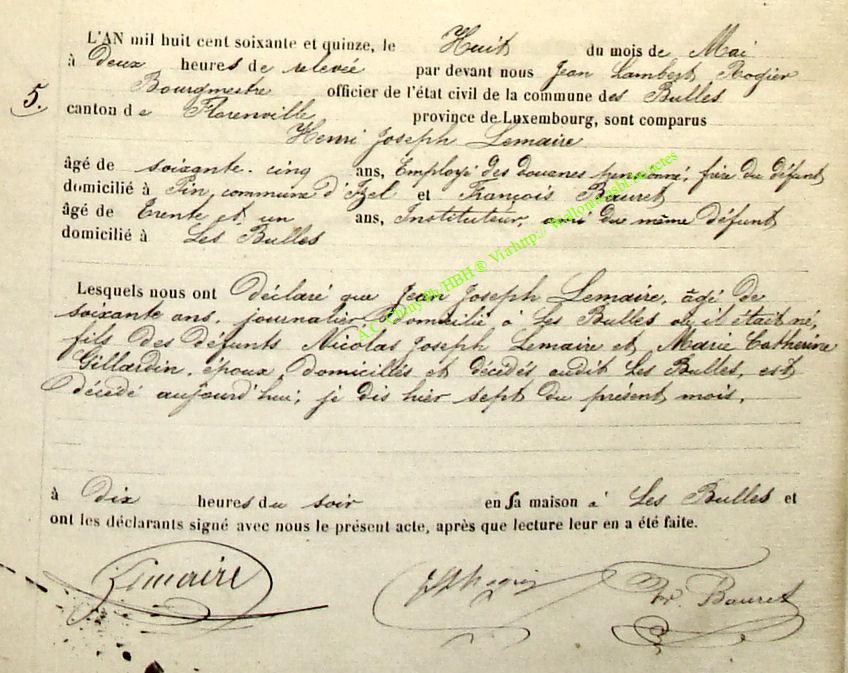 L'AN mil huit cent soixante et quinze, le Huit du mois de Mai
à Deux heures de relevée par devant nous Jean Lambert Rogier
Bourgmestre officier de l'état civil de la commune des Bulles
5. canton de Florenville province de Luxembourg, sont comparus
Henri Joseph Lemaire
âgé de soixante-cinq ans, Employé des douanes pensionné, frère du défunt
domicilié à Pin commune d'Izel et François Bauret
âgé de Trente et un ans, Instituteur, ami du même défunt
domicilié à Les Bulles
Lesquels nous ont Déclaré que Jean Joseph Lemaire, âgé de
soixante ans, journalier domicilié à Les Bulles où il était né,
fils des défunts Nicolas Joseph Lemaire et Marie Catherine
Gillardin, époux domiciliés et décédés audit Les Bulles, est
décédé aujourd'hui, je dis hier sept du présent mois,
à Dix heures du soir en sa maison à Les Bulles et
ont les déclarants signé avec nous le présent acte, après que lecture leur en a été faite.
Lemaire JL Rogier Fr. Bauret